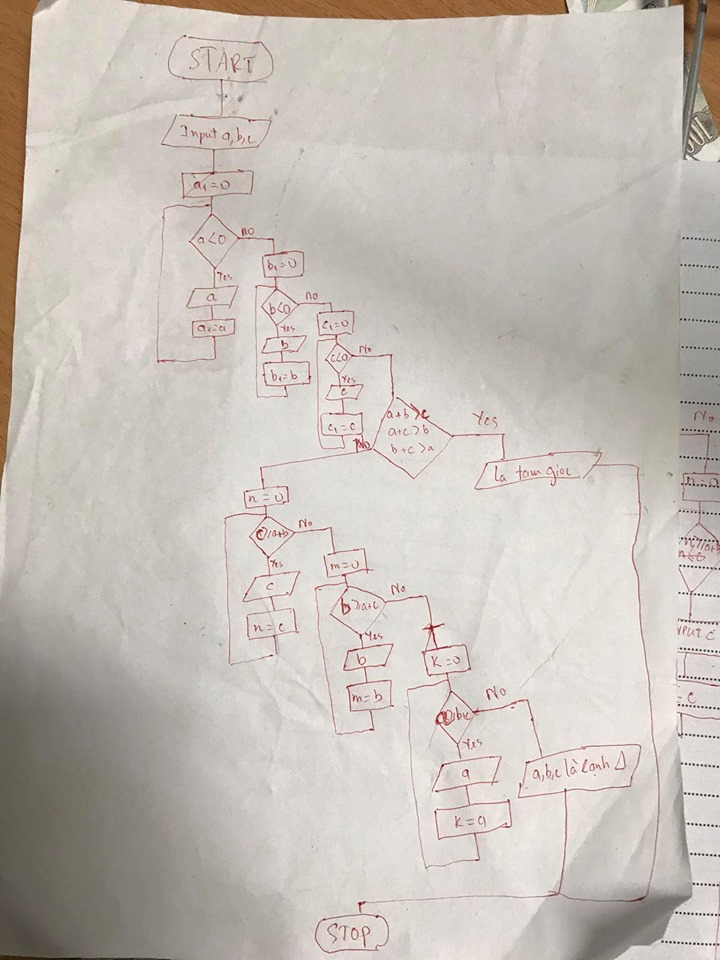 START
Input a,b,c
a₁=0
a<0
no
Yes
a
a₁=a
b₁=0
b<0
no
Yes
b
b₁=b
c₁=0
c<0
No
Yes
c
c₁=c
a+b>c
a+c>b
b+c>a
Yes
Là tam giác
No
n=0
c≥a+b
No
Yes
c
n=c
m=0
b≥a+c
No
Yes
b
m=b
K=0
a≥b+c
No
Yes
a
K=a
a,b,c là cạnh Δ
STOP
No
= c